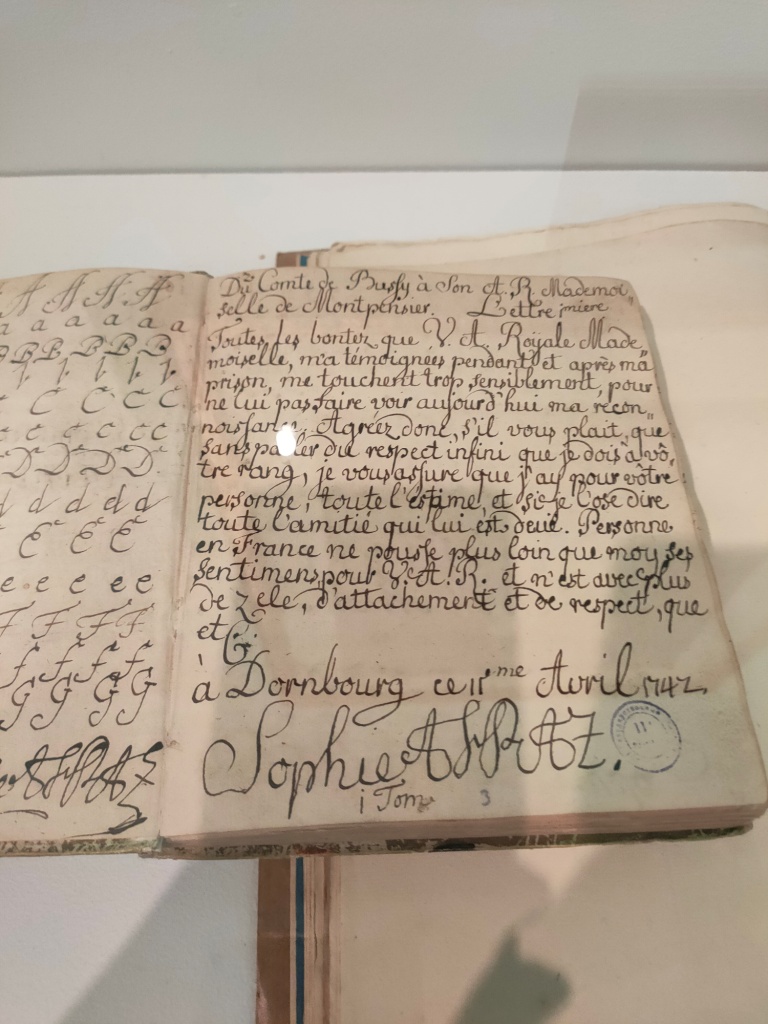 A A A A
a a a a a
B B B B B
b b b b
C C C C
c c c c c
D D D D
d d d d
E E E
e e e e e
F F F F
f f f f
G G G G
Du Comte de Bussy à Son A. R. Mademoi„
selle de Montpensier. Lettre
Toutes, les bontez que V. A. Royale Made„
moiselle, m'a témoignées pendant et après ma
prison, me touchent trop sensiblement, pour
ne lui pas faire voir aujourd'hui ma recon„
noissance. Agréez donc, s'il vous plait, que
sans parler du respect infini que je dois a vô„
tre rang, je vous assure que j'ay pour vôtre
personne, toute l'estime, et si je l'ose dire
toute l'amitié qui lui est deüe. Personne
en France ne pousse plus loin que moy ses
sentimens pour V. A. R. et n'est avec plus
de zele, d'attachement et de respect, que
et C.
à Dornbourg ce 11me Avril 1742.
Sophie A F R A Z.
1 Tom 3